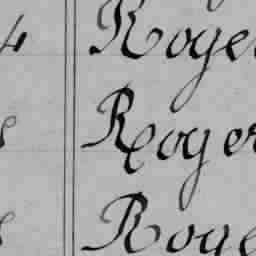 4 Roge
Roger
Roge